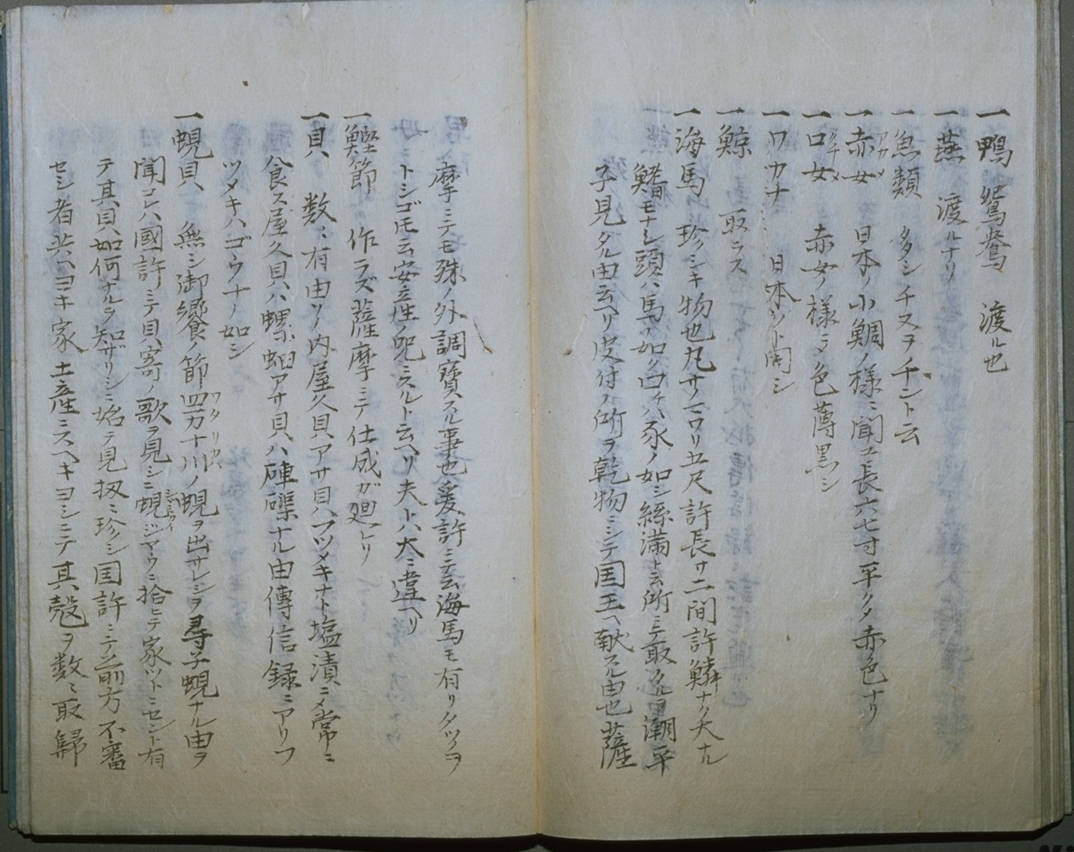 一鴨鴛鴦 渡ル也
一燕 渡ルナリ
一魚類 多シチヌヲチントと云
一赤女 日本ノ小鯛ノ様ニ聞エ長六七寸平タク赤色ナリ
一口女 赤女ノ様ニテ色薄黒シ
一ワカナ 日本ノツト同シ
一鯨 取ラス
一海馬珍シキ物也丸サマワリ五尺許長サ二間許鱗ナク大ナル
鰭モナシ頭ハ馬ノ如ク口ハ豕ノ如シ絲滿ト云所ニテ取タルヲ潮平
子見タル由云ヘリ皮付ノ所ヲ乾物ニシテ国王ヘ献スル由也薩
摩ニテモ殊ノ外調寳スル事也爰許ニテ云海馬モ有リタツヲ
トシゴモ云安産ノ呪ニスルト云ヘリ夫トハ大ニ違ヘリ
一鰹節 作ラズ薩摩ニテ仕成ガ廻レリ
一貝 数々有由ソノ内屋久貝アサ貝ブツメキナト塩漬ニメ常ニ
食ス屋久貝ハ螺蛳アサ貝ハ硨磲ナル由傳信録ニアリフ
ツメキハゴウナノ如シ
一蜆貝 無シ御饗ノ節四万十川ノ蜆ヲ出サレシヲ尋子蜆ナル由ヲ
ワタリ川
聞コハ國許ニテ貝寄ノ歌ヲ見シニ蜆シマウニ拾ヒテ家ツトニセント有
テ其貝如何ナルヲ知ザリシニ始テ見扨々珍シ国許ニテ前方不審
セシ者共ヘヨキ家土産ニスヘキヨシニテ其殻ヲ数々取歸